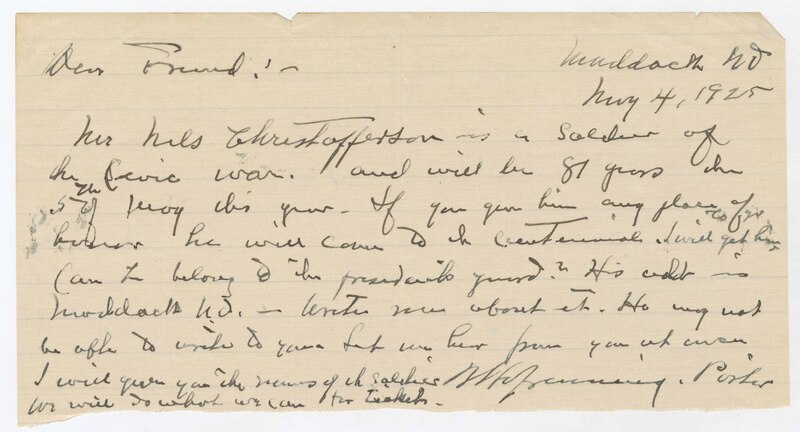 Dear Friend:- Maddock ND
May 4, 1925
Mr Nels Christofferson is a Soldier of
the Civic war. and will be 81 years the
5th of May this year - If you give him any place of
honor he will come to the centennial. I will get him to go
Can he belong to the presidents guard? His addr is
Maddock N.D. - Write me about it. He may not
be able to write to you. Let me hear from you at once
I will given you the names of the soldier Porter
We will do what we can for tickets.